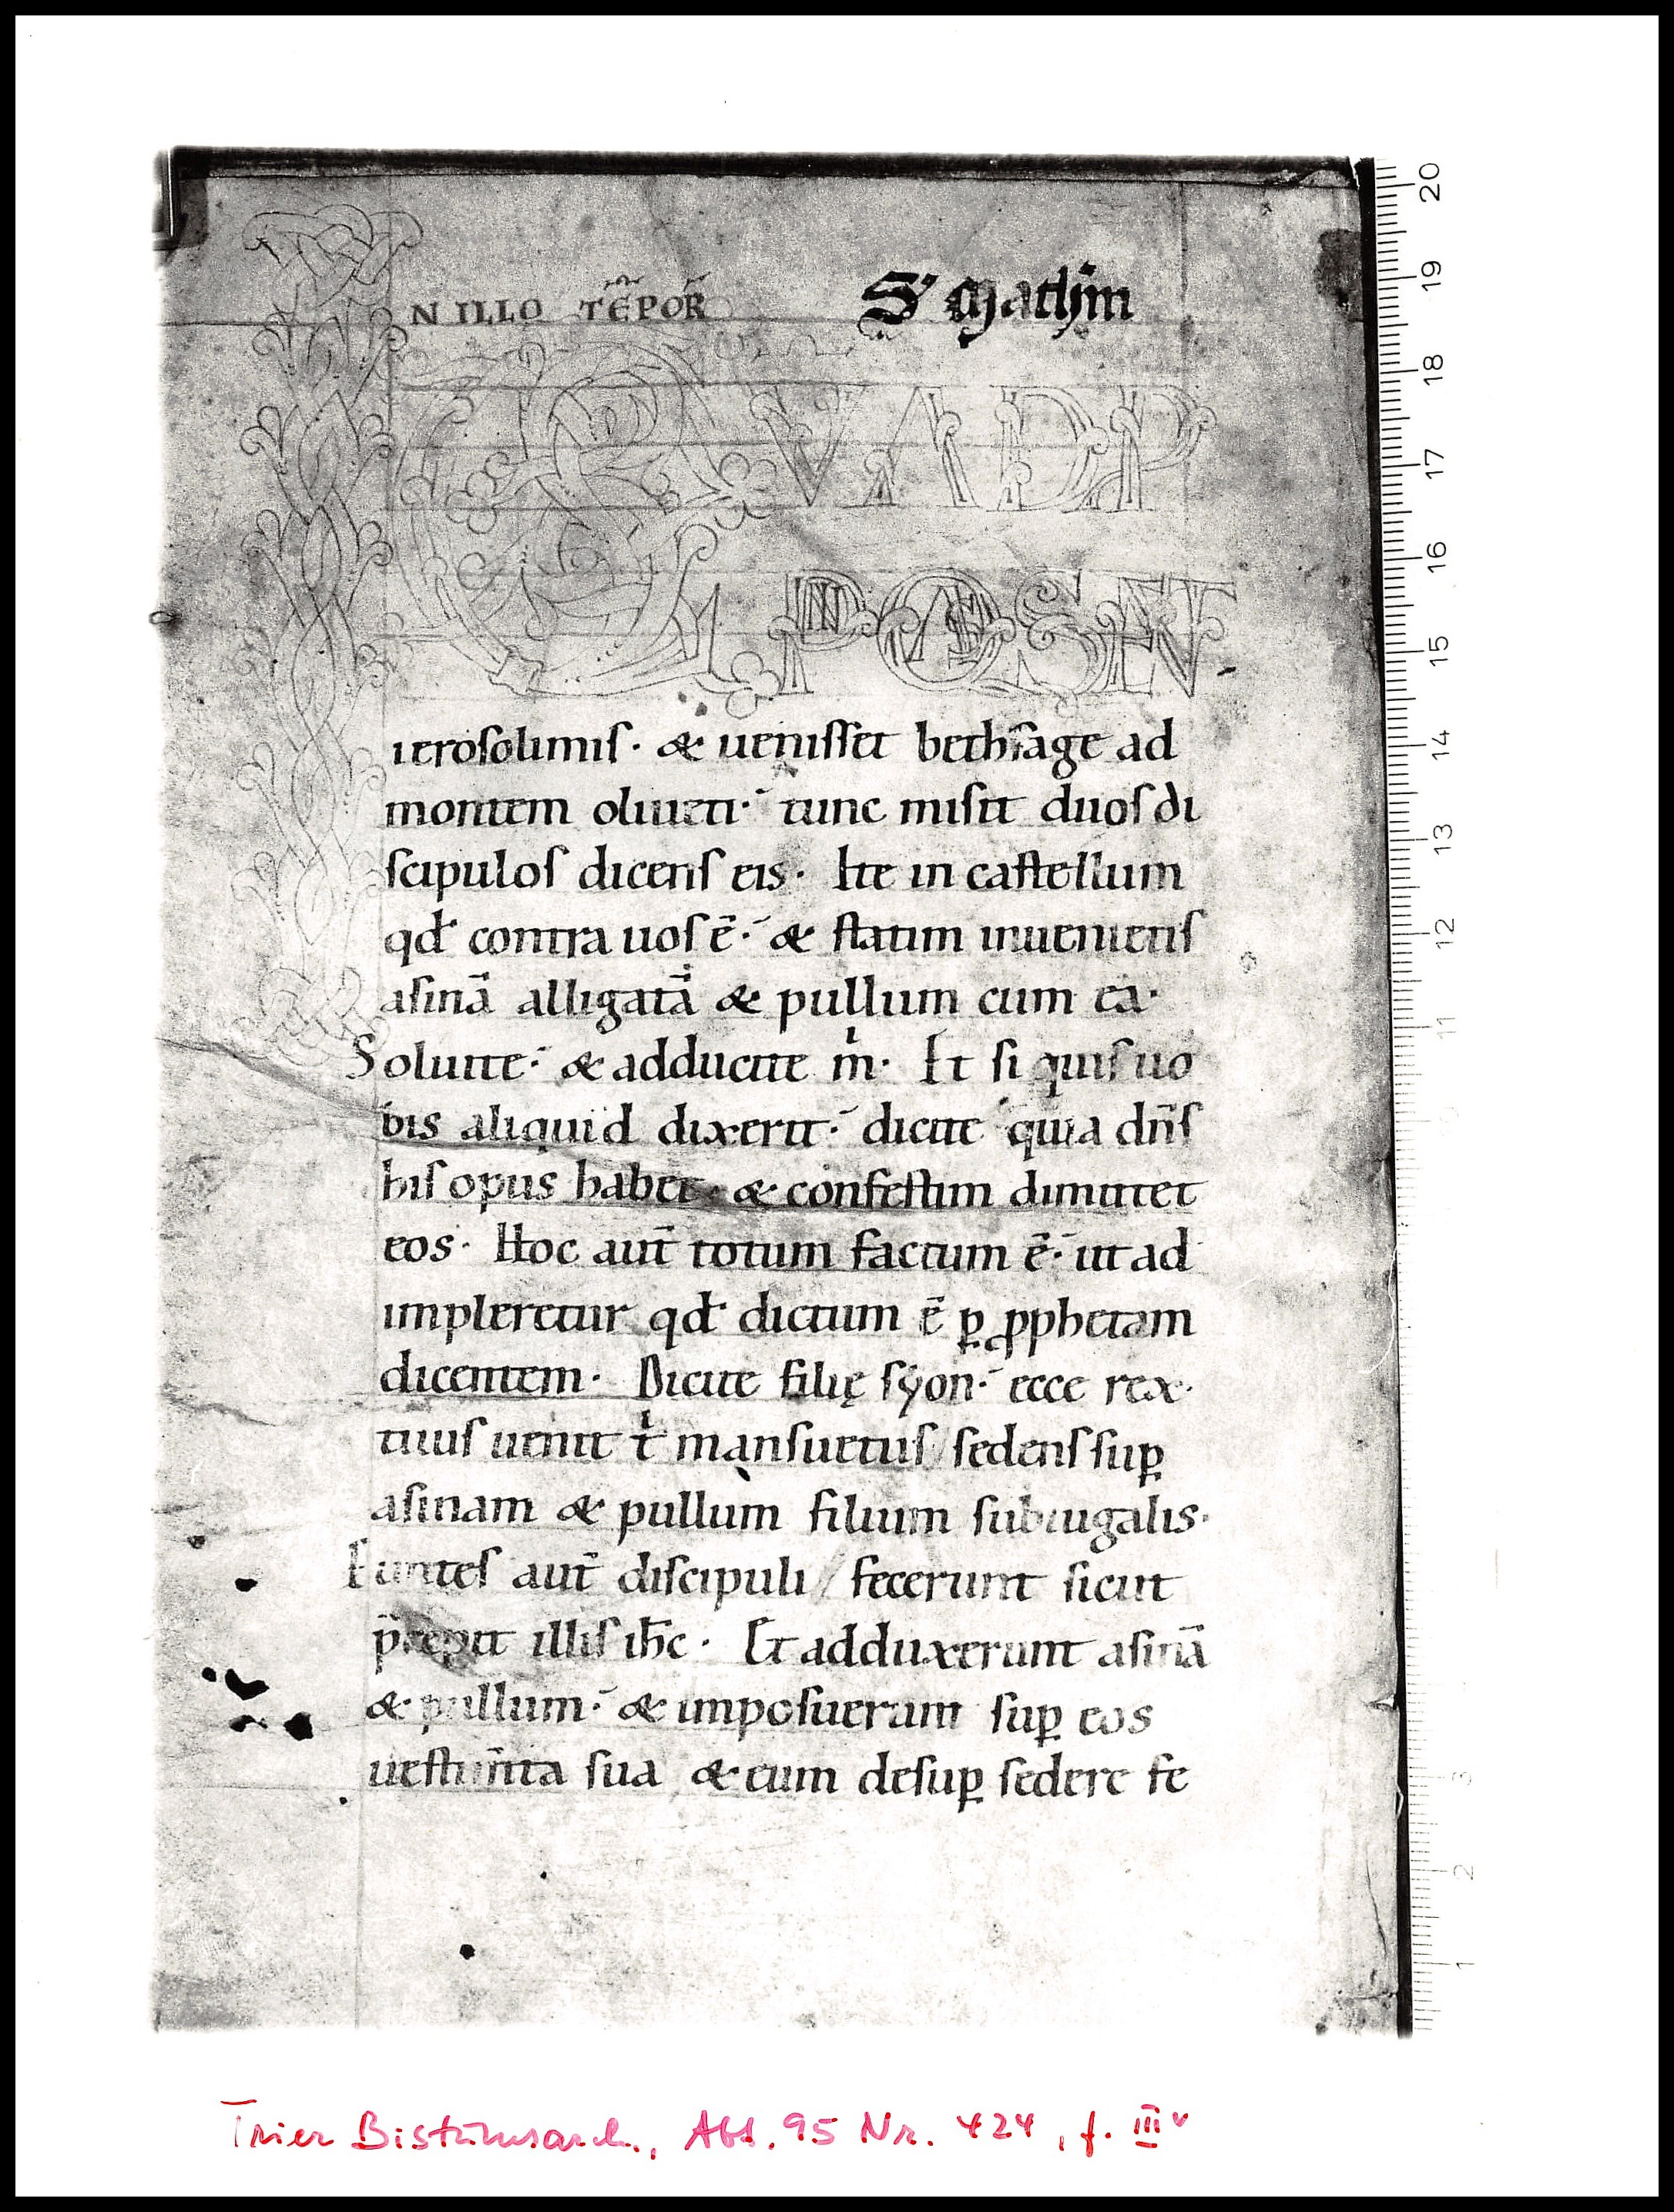 N ILLO TĒPOR̄
S' Mathm
QVADP
POSNT
ierosolimis· & uenisset bethfage ad
montem oliueti· tunc misit duos di
scipulos dicens eis· Ite in castellum
qđ contra uos ē· & statim inuenietis
asinā alligatā & pullum cum ea·
Soluite· & adducite m̍· Et si quis uo
bis aliquid dixerit· dicite quia dn̄s
his opus habet· & confestim dimittet
eos· Hoc aut̄ totum factum ē· ut ad
impleretur qđ dictum ē ꝑ ꝓphetam
dicentem· Dicite filię syon· ecce rex·
tuus uenit t̍ mansuetus / sedens suꝑ
asinam & pullum filium subiugalis·
Euntes aut̄ discipuli / fecerunt sicut
p̄cepit illis ih̄c· Et adduxerunt asinā
& pullum· & imposuerunt suꝑ eos
uestim̄ta sua & eum desuꝑ sedere fe
20
19
18
17
16
15
14
13
12
11
3
2
1
Trier Bistumsarch., Abt. 95 Nr. 424, f. IIIv